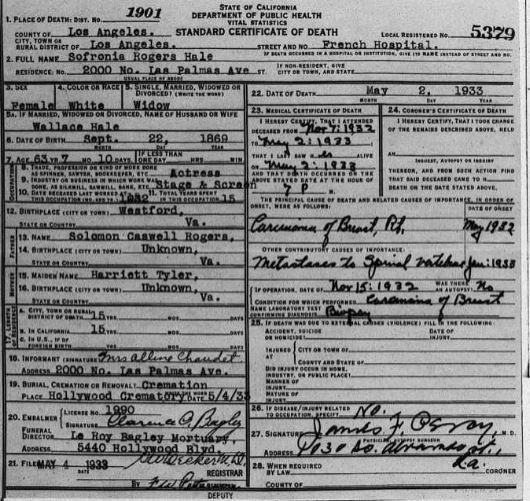 STATE OF CALIFORNIA
DEPARTMENT OF PUBLIC HEALTH
VITAL STATISTICS
STANDARD CERTIFICATE OF DEATH
1. PLACE OF DEATH: DIST. NO. 1901
LOCAL REGISTERED NO. 5379
COUNTY OF Los Angeles.
CITY, TOWN OR RURAL DISTRICT OF Los Angeles.
STREET AND NO. French Hospital.
IF DEATH OCCURRED IN A HOSPITAL OR INSTITUTION, GIVE ITS NAME INSTEAD OF STREET AND NO.
2. FULL NAME Sofronia Rogers Hale
RESIDENCE: NO. 2000 No. Las Palmas Ave ST.
IF NON-RESIDENT, GIVE CITY OR TOWN, AND STATE
USUAL PLACE OF ABODE
3. SEX Female
4. COLOR OR RACE White
5. SINGLE, MARRIED, WIDOWED OR DIVORCED? (WRITE THE WORD) Widow
5A. IF MARRIED, WIDOWED OR DIVORCED, NAME OF HUSBAND OR WIFE
Wallace Hale
6. DATE OF BIRTH Sept. 22, 1869
MONTH DAY YEAR
7. AGE 63 YR 7 MO. 10 DAYS IF LESS THAN ONE DAY HRS MIN
8. TRADE, PROFESSION OR KIND OF WORK DONE AS SPINNER, SAWYER, BOOKKEEPER, ETC. Actress
9. INDUSTRY OR BUSINESS IN WHICH WORK WAS DONE, AS SILKMILL, SAWMILL, BANK, ETC. Stage & Screen
10. DATE DECEASED LAST WORKED AT THIS OCCUPATION 1932
11. TOTAL YEARS IN THIS OCCUPATION 15
12. BIRTHPLACE (CITY OR TOWN) Westford,
STATE OR COUNTRY Va.
13. NAME Solomon Caswell Rogers,
14. BIRTHPLACE (CITY OR TOWN) Unknown,
STATE OR COUNTRY Va.
15. MAIDEN NAME Harriett Tyler,
16. BIRTHPLACE (CITY OR TOWN) Unknown,
STATE OR COUNTRY Va.
A. CITY, TOWN OR RURAL DISTRICT OF DEATH 15 YRS MOS. DAYS
B. IN CALIFORNIA 15 YRS MOS. DAYS
C. IN U.S., IF OF FOREIGN BIRTH YRS MOS. DAYS
18. INFORMANT (SIGNATURE) Mrs Alline Chaudet
ADDRESS 2000 No. Las Palmas Ave.
19. BURIAL, CREMATION OR REMOVAL? Cremation
PLACE Hollywood Crematory DATE 5/4/33
20. EMBALMER LICENSE NO. 1990
SIGNATURE Clarence O. Bagley
FUNERAL DIRECTOR Le Roy Bagley Mortuary,
ADDRESS 5440 Hollywood Blvd.
21. FILED MAY 4 1933
REGISTRAR
By
DEPUTY
22. DATE OF DEATH May 2, 1933
MONTH DAY YEAR
23. MEDICAL CERTIFICATE OF DEATH
I HEREBY CERTIFY, THAT I ATTENDED DECEASED FROM Nov 7, 1932
TO May 2, 1933
THAT I LAST SAW ALIVE
May 2, 1933
AND THAT DEATH OCCURRED ON THE ABOVE STATED DATE AT THE HOUR OF 7 P. M.
24. CORONER'S CERTIFICATE OF DEATH
I HEREBY CERTIFY, THAT I TOOK CHARGE OF THE REMAINS DESCRIBED ABOVE, HELD
INQUEST, AUTOPSY OR INQUIRY
THEREON, AND FROM SUCH ACTION FIND THAT SAID DECEASED CAME TO DEATH ON THE DATE STATED ABOVE.
THE PRINCIPAL CAUSE OF DEATH AND RELATED CAUSES OF IMPORTANCE, IN ORDER OF ONSET, WERE AS FOLLOWS:
DATE OF ONSET
Carcinoma of Breast, Rt. May 1932
OTHER CONTRIBUTORY CAUSES OF IMPORTANCE:
Metastases to Spinal Jan. 1933
IF OPERATION, DATE OF Nov 15, 1932 WAS THERE AN AUTOPSY? No
CONDITION FOR WHICH PERFORMED Carcinoma of Breast
NAME LABORATORY TEST CONFIRMING DIAGNOSIS Biopsy
25. IF DEATH WAS DUE TO EXTERNAL CAUSES (VIOLENCE) FILL IN THE FOLLOWING:
ACCIDENT, SUICIDE OR HOMICIDE?
DATE OF INJURY
INJURED AT CITY OR TOWN OF
COUNTY AND STATE OF
DID INJURY OCCUR IN HOME, INDUSTRY, OR PUBLIC PLACE?
MANNER OF INJURY
NATURE OF INJURY
26. IF DISEASE/INJURY RELATED TO OCCUPATION, SPECIFY No.
27. SIGNATURE James F. M.D.
ADDRESS
28. WHEN REQUIRED BY LAW CORONER
COUNTY OF